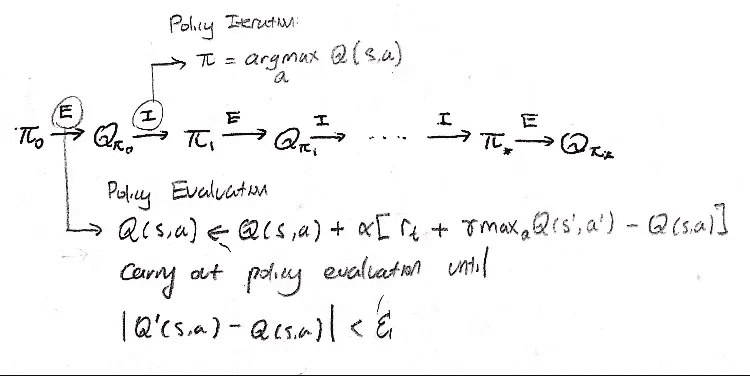 Policy Iteration:
π = argmax Q(s,a)
a
E I E I I E
π₀ → Qπ₀ → π₁ → Qπ₁ → .... → π* → Qπ*
Policy Evaluation
Q(s,a) ← Q(s,a) + α[rt + γmaxₐQ(s',a') - Q(s,a)]
Carry out policy evaluation until
|Q'(s,a) - Q(s,a)| < ε